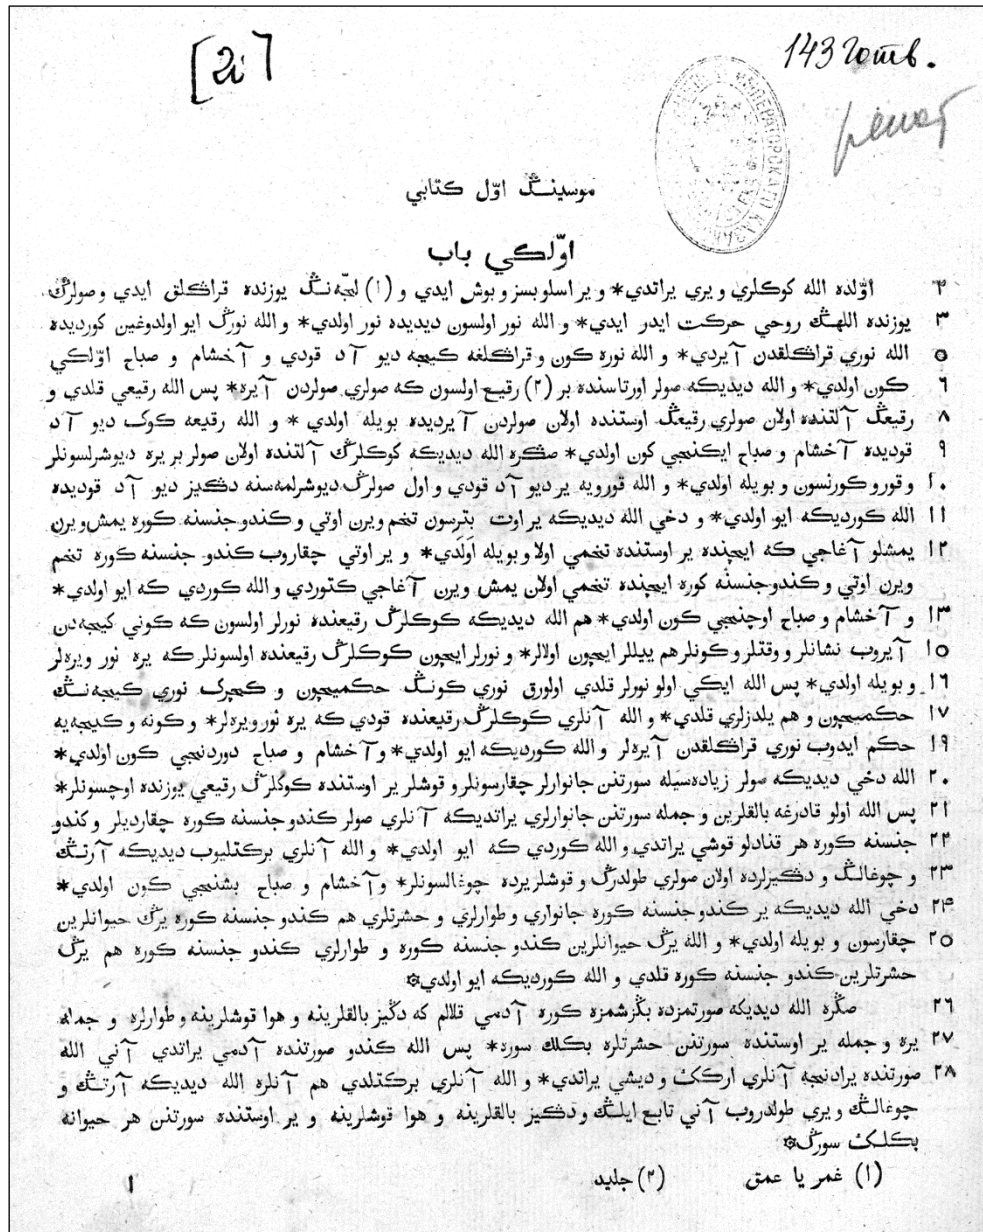 [2i]
143 готв.
ИМПЕРАТОРСКАГО КАЗАН
موسينڭ اوّل كتابي
اوّلكي باب
٢ اوّلده الله كوكلري ويري يراتدي* و ير اسلوبسز و بوش ايدي و (١) لجّه‌نڭ يوزنده قراڭلق ايدي وصولرڭ
٣ يوزنده اللهڭ روحي حركت ايدر ايدي* و الله نور اولسون ديديده نور اولدي* و الله نورڭ ايو اولدوغين كورديده
٥ الله نوري قراڭلقدن آيردي* و الله نوره كون و قراڭلغه كيجه ديو آد قودي و آخشام و صباح اوّلكي
٦ كون اولدي* و الله ديديكه صولر اورتاسنده بر (٢) رقيع اولسون كه صولري صولردن آيره* پس الله رقيعي قلدي و
٨ رقيعڭ آلتنده اولان صولري رقيعڭ اوستنده اولان صولردن آيرديده بويله اولدي* و الله رقيعه كوك ديو آد
٩ قوديده آخشام و صباح ايكنجي كون اولدي* صڭره الله ديديكه كوكلرڭ آلتنده اولان صولر بر يره ديوشرلسونلر
١٠ و قورو كورنسون و بويله اولدي* و الله قورويه ير ديو آد قودي و اول صولرڭ ديوشرلمه‌سنه دڭيز ديو آد قوديده
١١ الله كورديكه ايو اولدي* و دخي الله ديديكه ير اوت بترسون تخم ويرن اوتي و كندو جنسنه كوره يمش ويرن
١٢ يمشلو آغاجي كه ايچنده ير اوستنده تخمي اولا و بويله اولدي* و ير اوتي چقاروب كندو جنسنه كوره تخم
ويرن اوتي و كندو جنسنه كوره ايچنده تخمي اولان يمش ويرن آغاجي كتوردي و الله كوردي كه ايو اولدي*
١٣ و آخشام و صباح اوچنجي كون اولدي* هم الله ديديكه كوكلرڭ رقيعنده نورلر اولسون كه كوني كيجه‌دن
١٥ آيروب نشانلر و وقتلر و كونلر هم ييللر ايچون اولالر* و نورلر ايچون كوكلرڭ رقيعنده اولسونلر كه يره نور ويره‌لر
١٦ و بويله اولدي* پس الله ايكي اولو نورلر قلدي اولورق نوري كونڭ حكميچون و كچرك نوري كيجه‌نڭ
١٧ حكميچون و هم يلدزلري قلدي* و الله آنلري كوكلرڭ رقيعنده قودي كه يره نور ويره‌لر* و كونه و كيجه‌يه
١٩ حكم ايدوب نوري قراڭلقدن آيره‌لر و الله كورديكه ايو اولدي* و آخشام و صباح دوردنجي كون اولدي*
٢٠ الله دخي ديديكه صولر زياده‌سيله سورتنن جانوارلر چقارسونلر و قوشلر ير اوستنده كوكلرڭ رقيعي يوزنده اوچسونلر*
٢١ پس الله اولو قادرغه بالقلرين و جمله سورتنن جانوارلري يراتديكه آنلري صولر كندو جنسنه كوره چقارديلر و كندو
٢٢ جنسنه كوره هر قنادلو قوشي يراتدي و الله كوردي كه ايو اولدي* و الله آنلري بركتليوب ديديكه آرتڭ
٢٣ و چوغالڭ و دڭيزلرده اولان صولري طولدرڭ و قوشلر يرده چوغالسونلر* و آخشام و صباح بشنجي كون اولدي*
٢٤ دخي الله ديديكه ير كندو جنسنه كوره جانواري و طوارلري و حشرتلري هم كندو جنسنه كوره يرڭ حيوانلرين
٢٥ چقارسون و بويله اولدي* و الله يرڭ حيوانلرين كندو جنسنه كوره و طوارلري كندو جنسنه كوره هم يرڭ
حشرتلرين كندو جنسنه كوره قلدي و الله كورديكه ايو اولدي۞
٢٦ صڭره الله ديديكه صورتمزده بڭزشمزه كوره آدمي قلالم كه دڭيز بالقلرينه و هوا قوشلرينه و طوارلره و جمله
٢٧ يره و جمله ير اوستنده سورتنن حشرتلره بكلك سوره* پس الله كندو صورتنده آدمي يراتدي آني الله
٢٨ صورتنده يرادنجه آنلري ارككـ و ديشي يراتدي* و الله آنلري بركتلدي هم آنلره الله ديديكه آرتڭ و
چوغالڭ و يري طولدروب آني تابع ايلڭ و دڭيز بالقلرينه و هوا قوشلرينه و ير اوستنده سورتنن هر حيوانه
بكلك سورڭ۞
(١) غمر يا عمق (٢) جليد
١